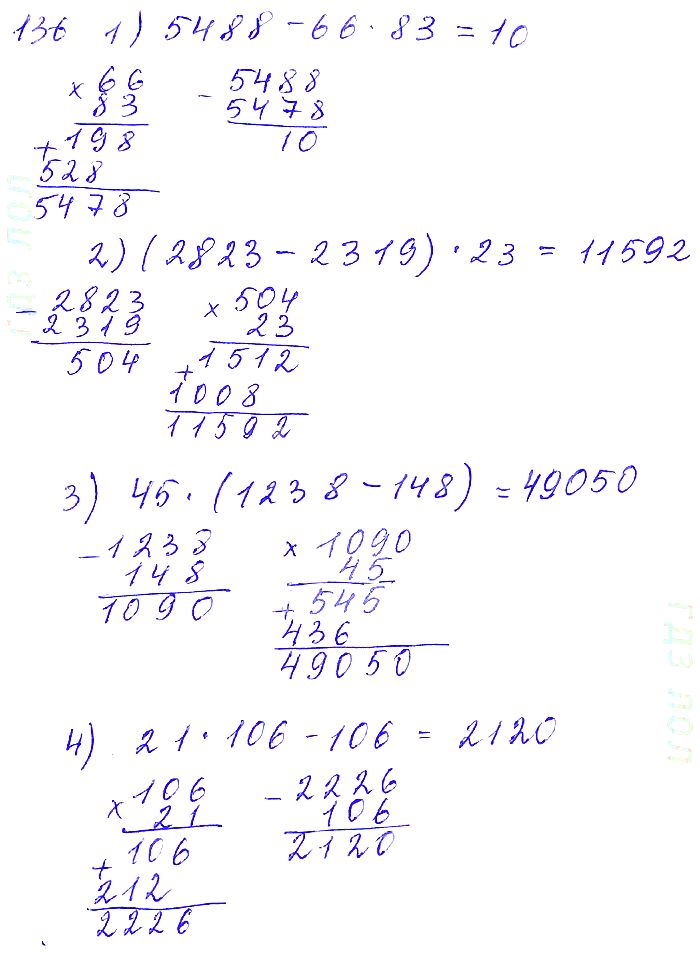 136 1) 5488 - 66 · 83 = 10
× 66 - 5488
83 5478
+ 198 10
528
5478
2) (2823 - 2319) · 23 = 11592
- 2823 × 504
2319 23
504 + 1512
1008
11592
3) 45 · (1238 - 148) = 49050
- 1238 × 1090
148 45
1090 + 545
436
49050
4) 21 · 106 - 106 = 2120
× 106 - 2226
21 106
+ 106 2120
212
2226
гдз лол
гдз лол